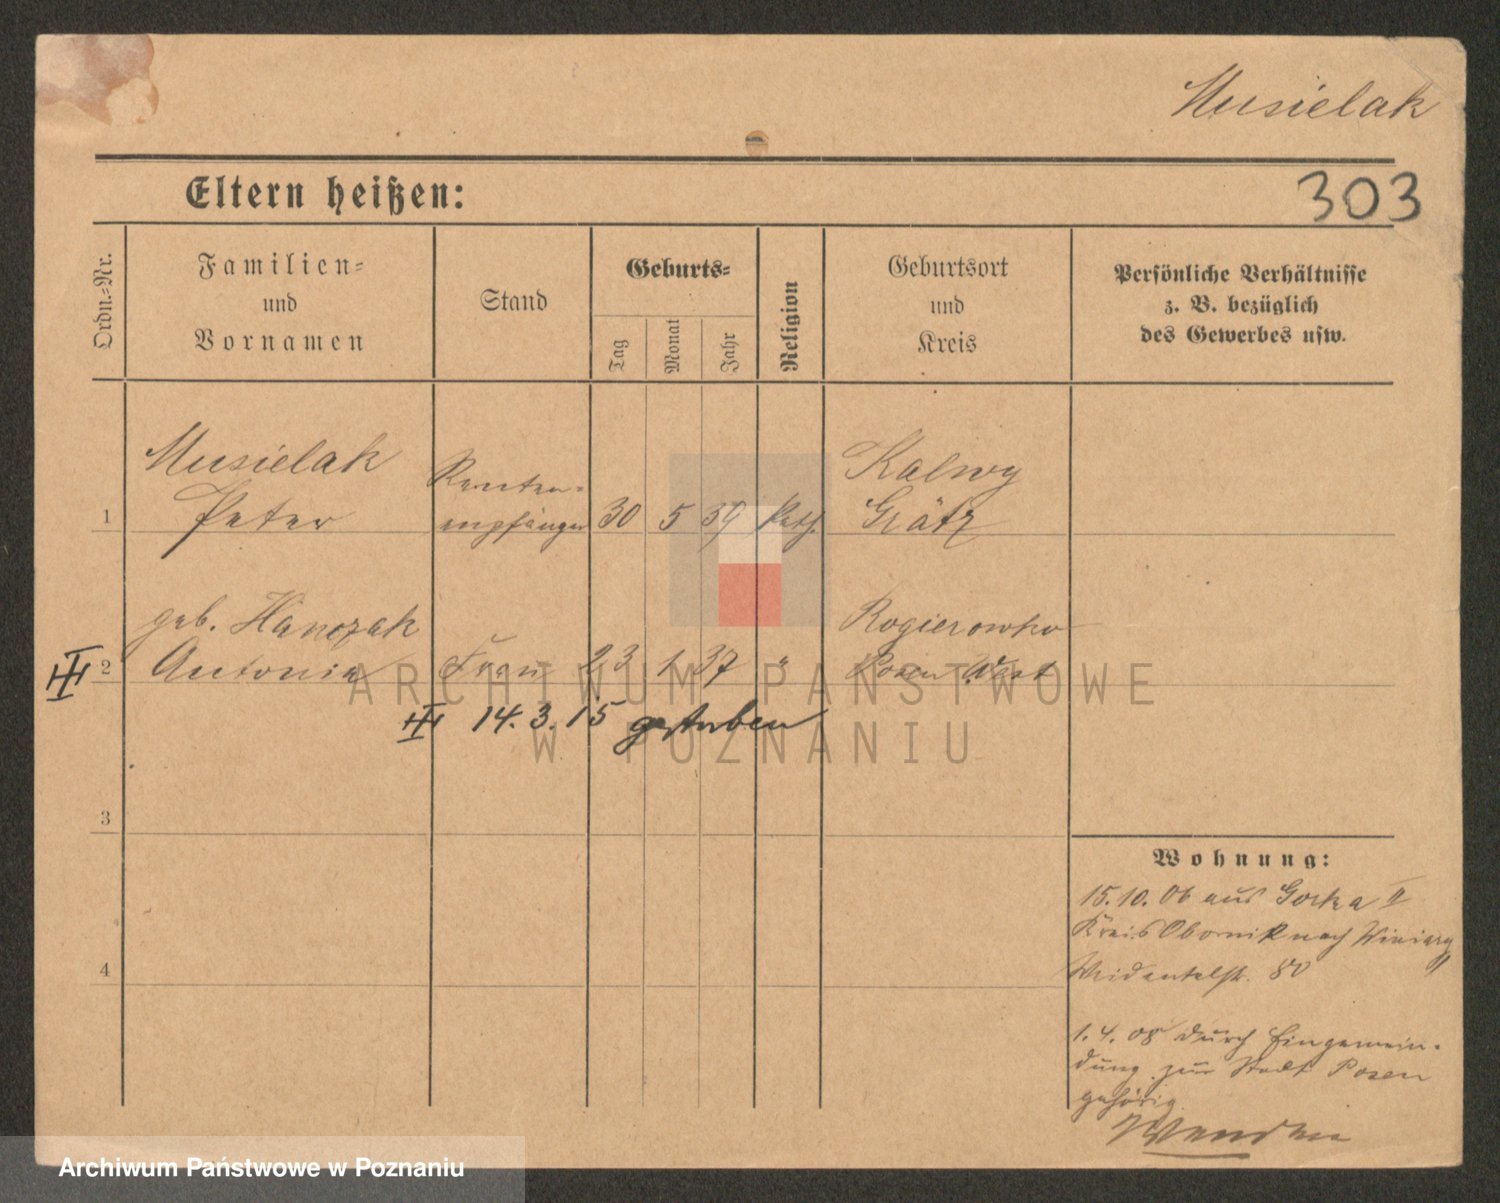 Musielak
303
Eltern heißen:
Ordn.-Nr.
Familien-
und
Vornamen
Stand
Geburts-
Tag
Monat
Jahr
Religion
Geburtsort
und
Kreis
Persönliche Verhältnisse
z. B. bezüglich
des Gewerbes usw.
Musielak
Peter
Renten-
empfänger
30 5 39 kath.
Kalwy
Grätz
1
geb. Hanczak
Antonia
Frau
23 1 37 "
Rogierowko
Posen West
III 2
III 14. 3. 15 gestorben
3
4
Wohnung:
15.10.06 aus Gorka II
Kreis Obornik nach Winiary
Weidentalstr. 80
1.4.08 durch Eingemein-
dung zur Stadt Posen
gehörig.
Wenden
ARCHIWUM PAŃSTWOWE
W POZNANIU
Archiwum Państwowe w Poznaniu